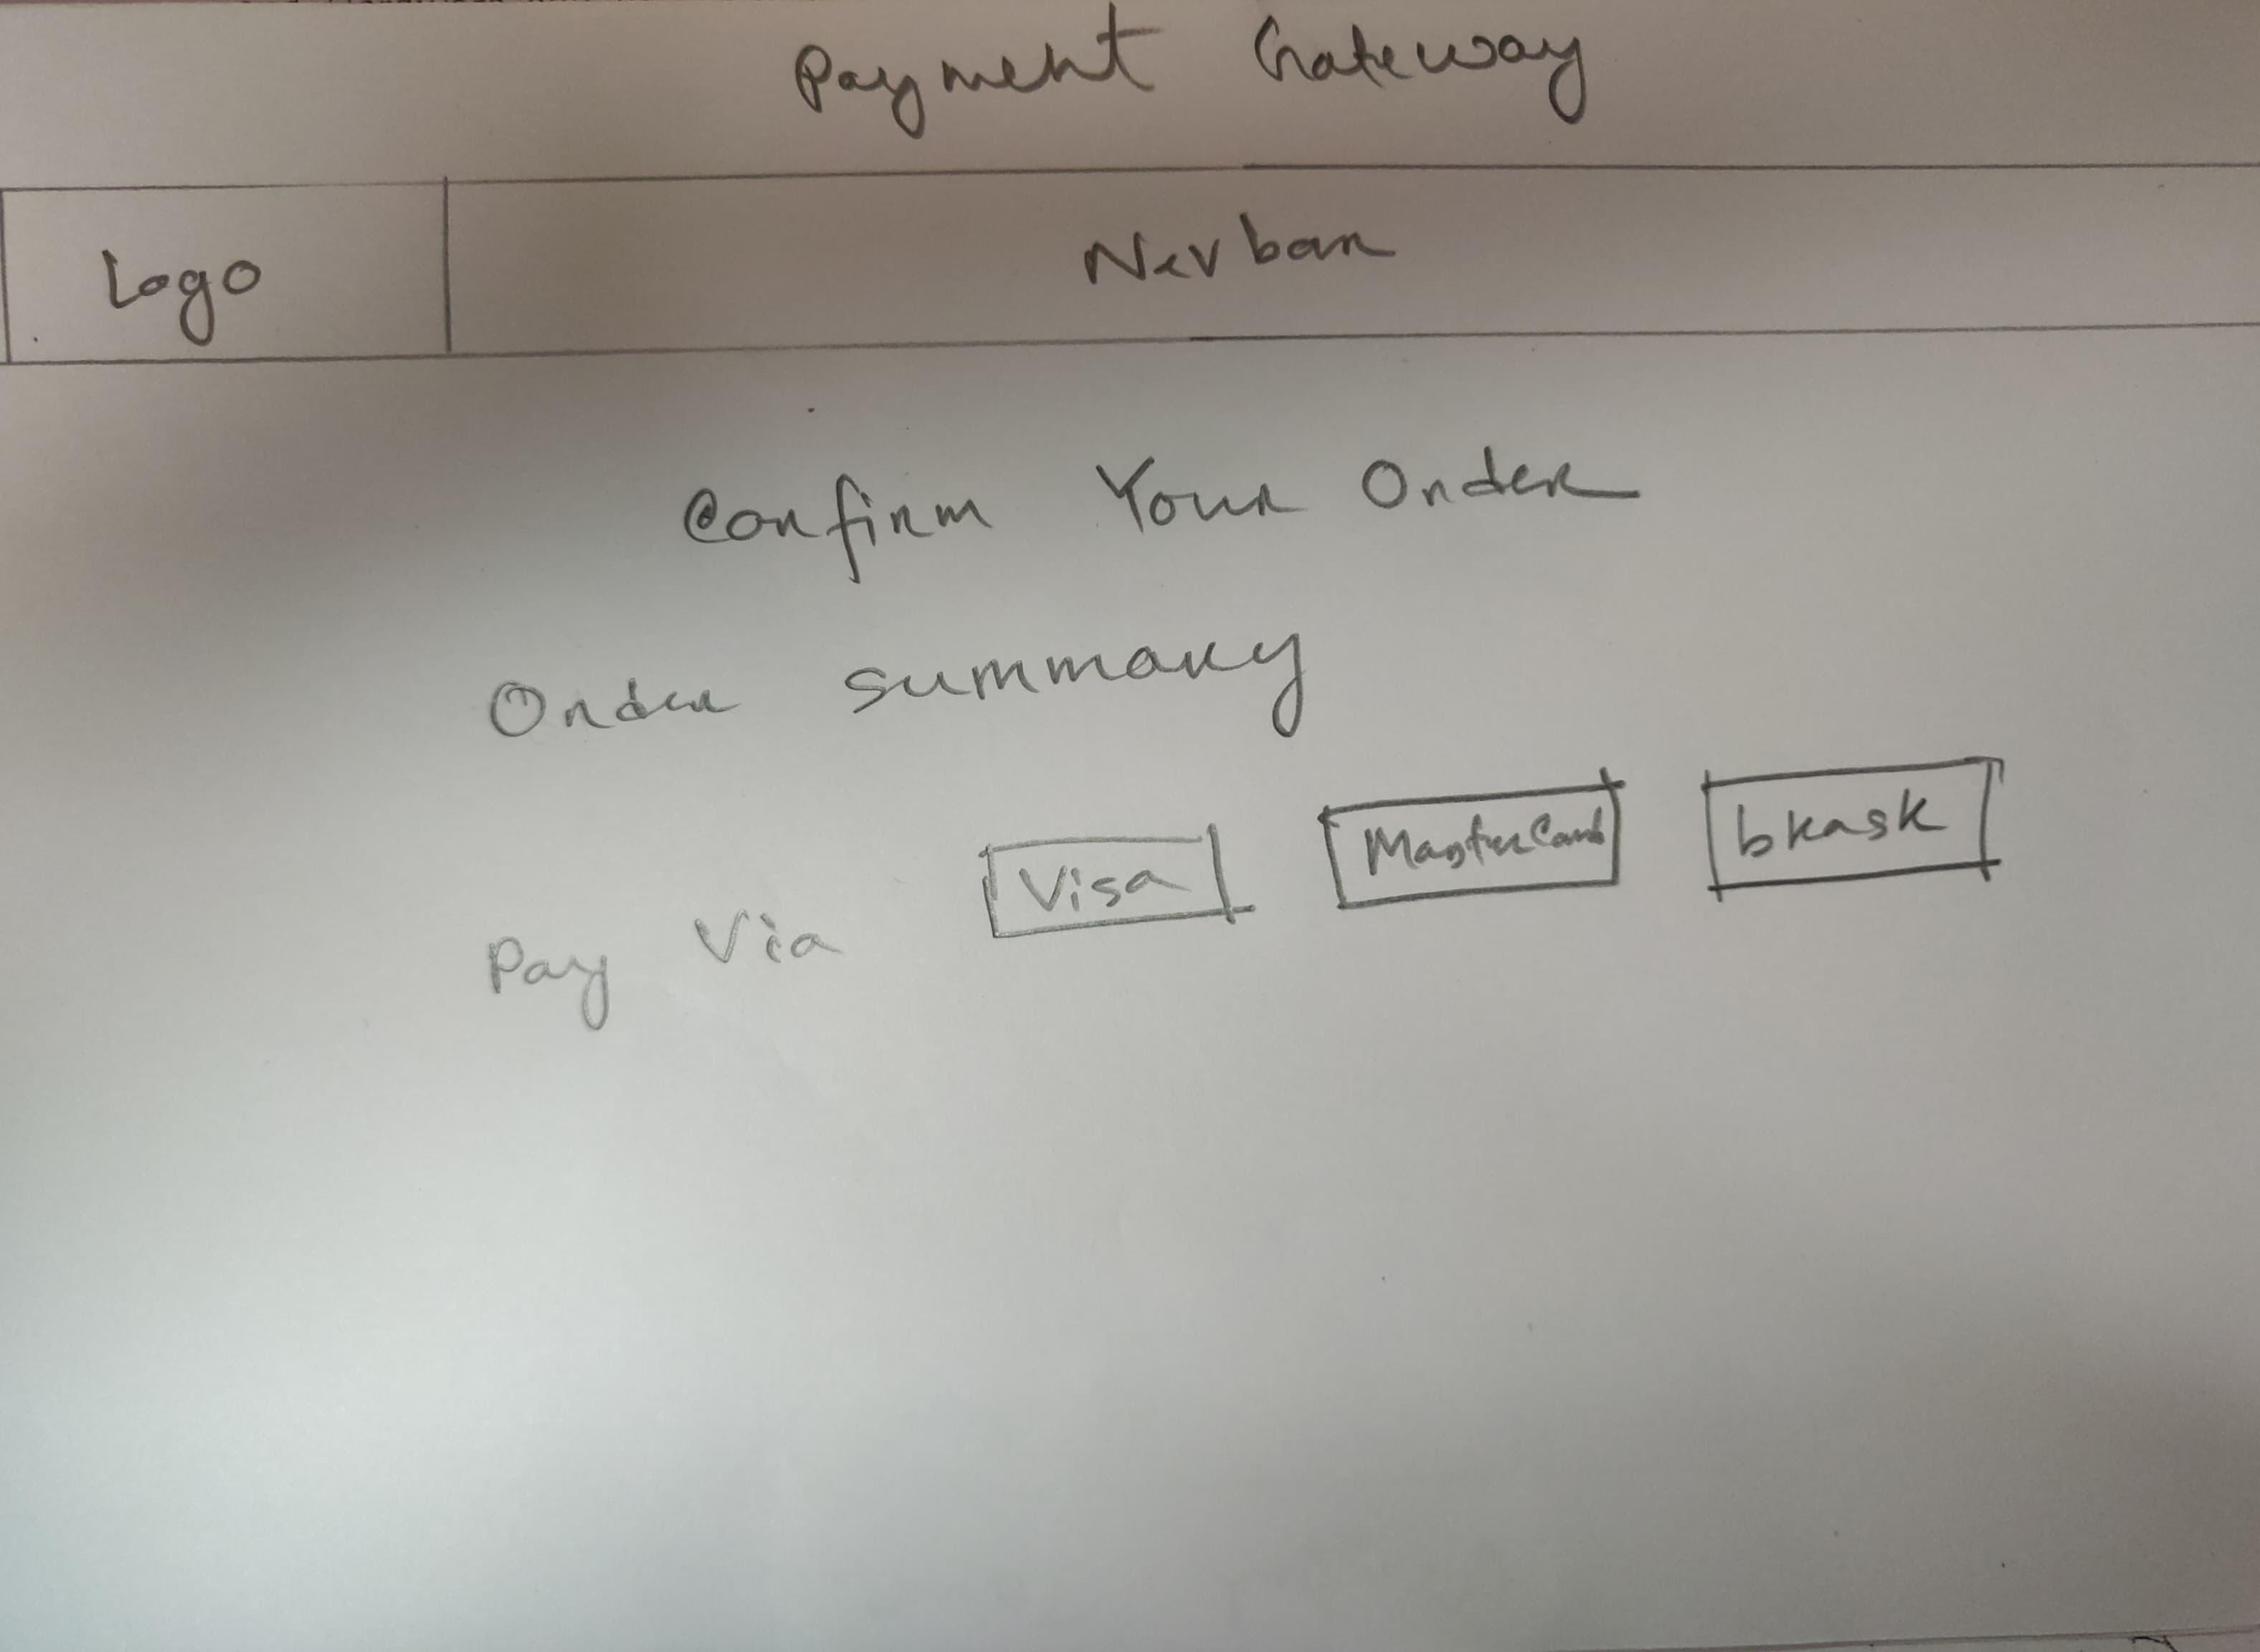 Payment Gateway
Logo
Navbar
Confirm Your Order
Order summary
Visa MasterCard bkash
Pay Via